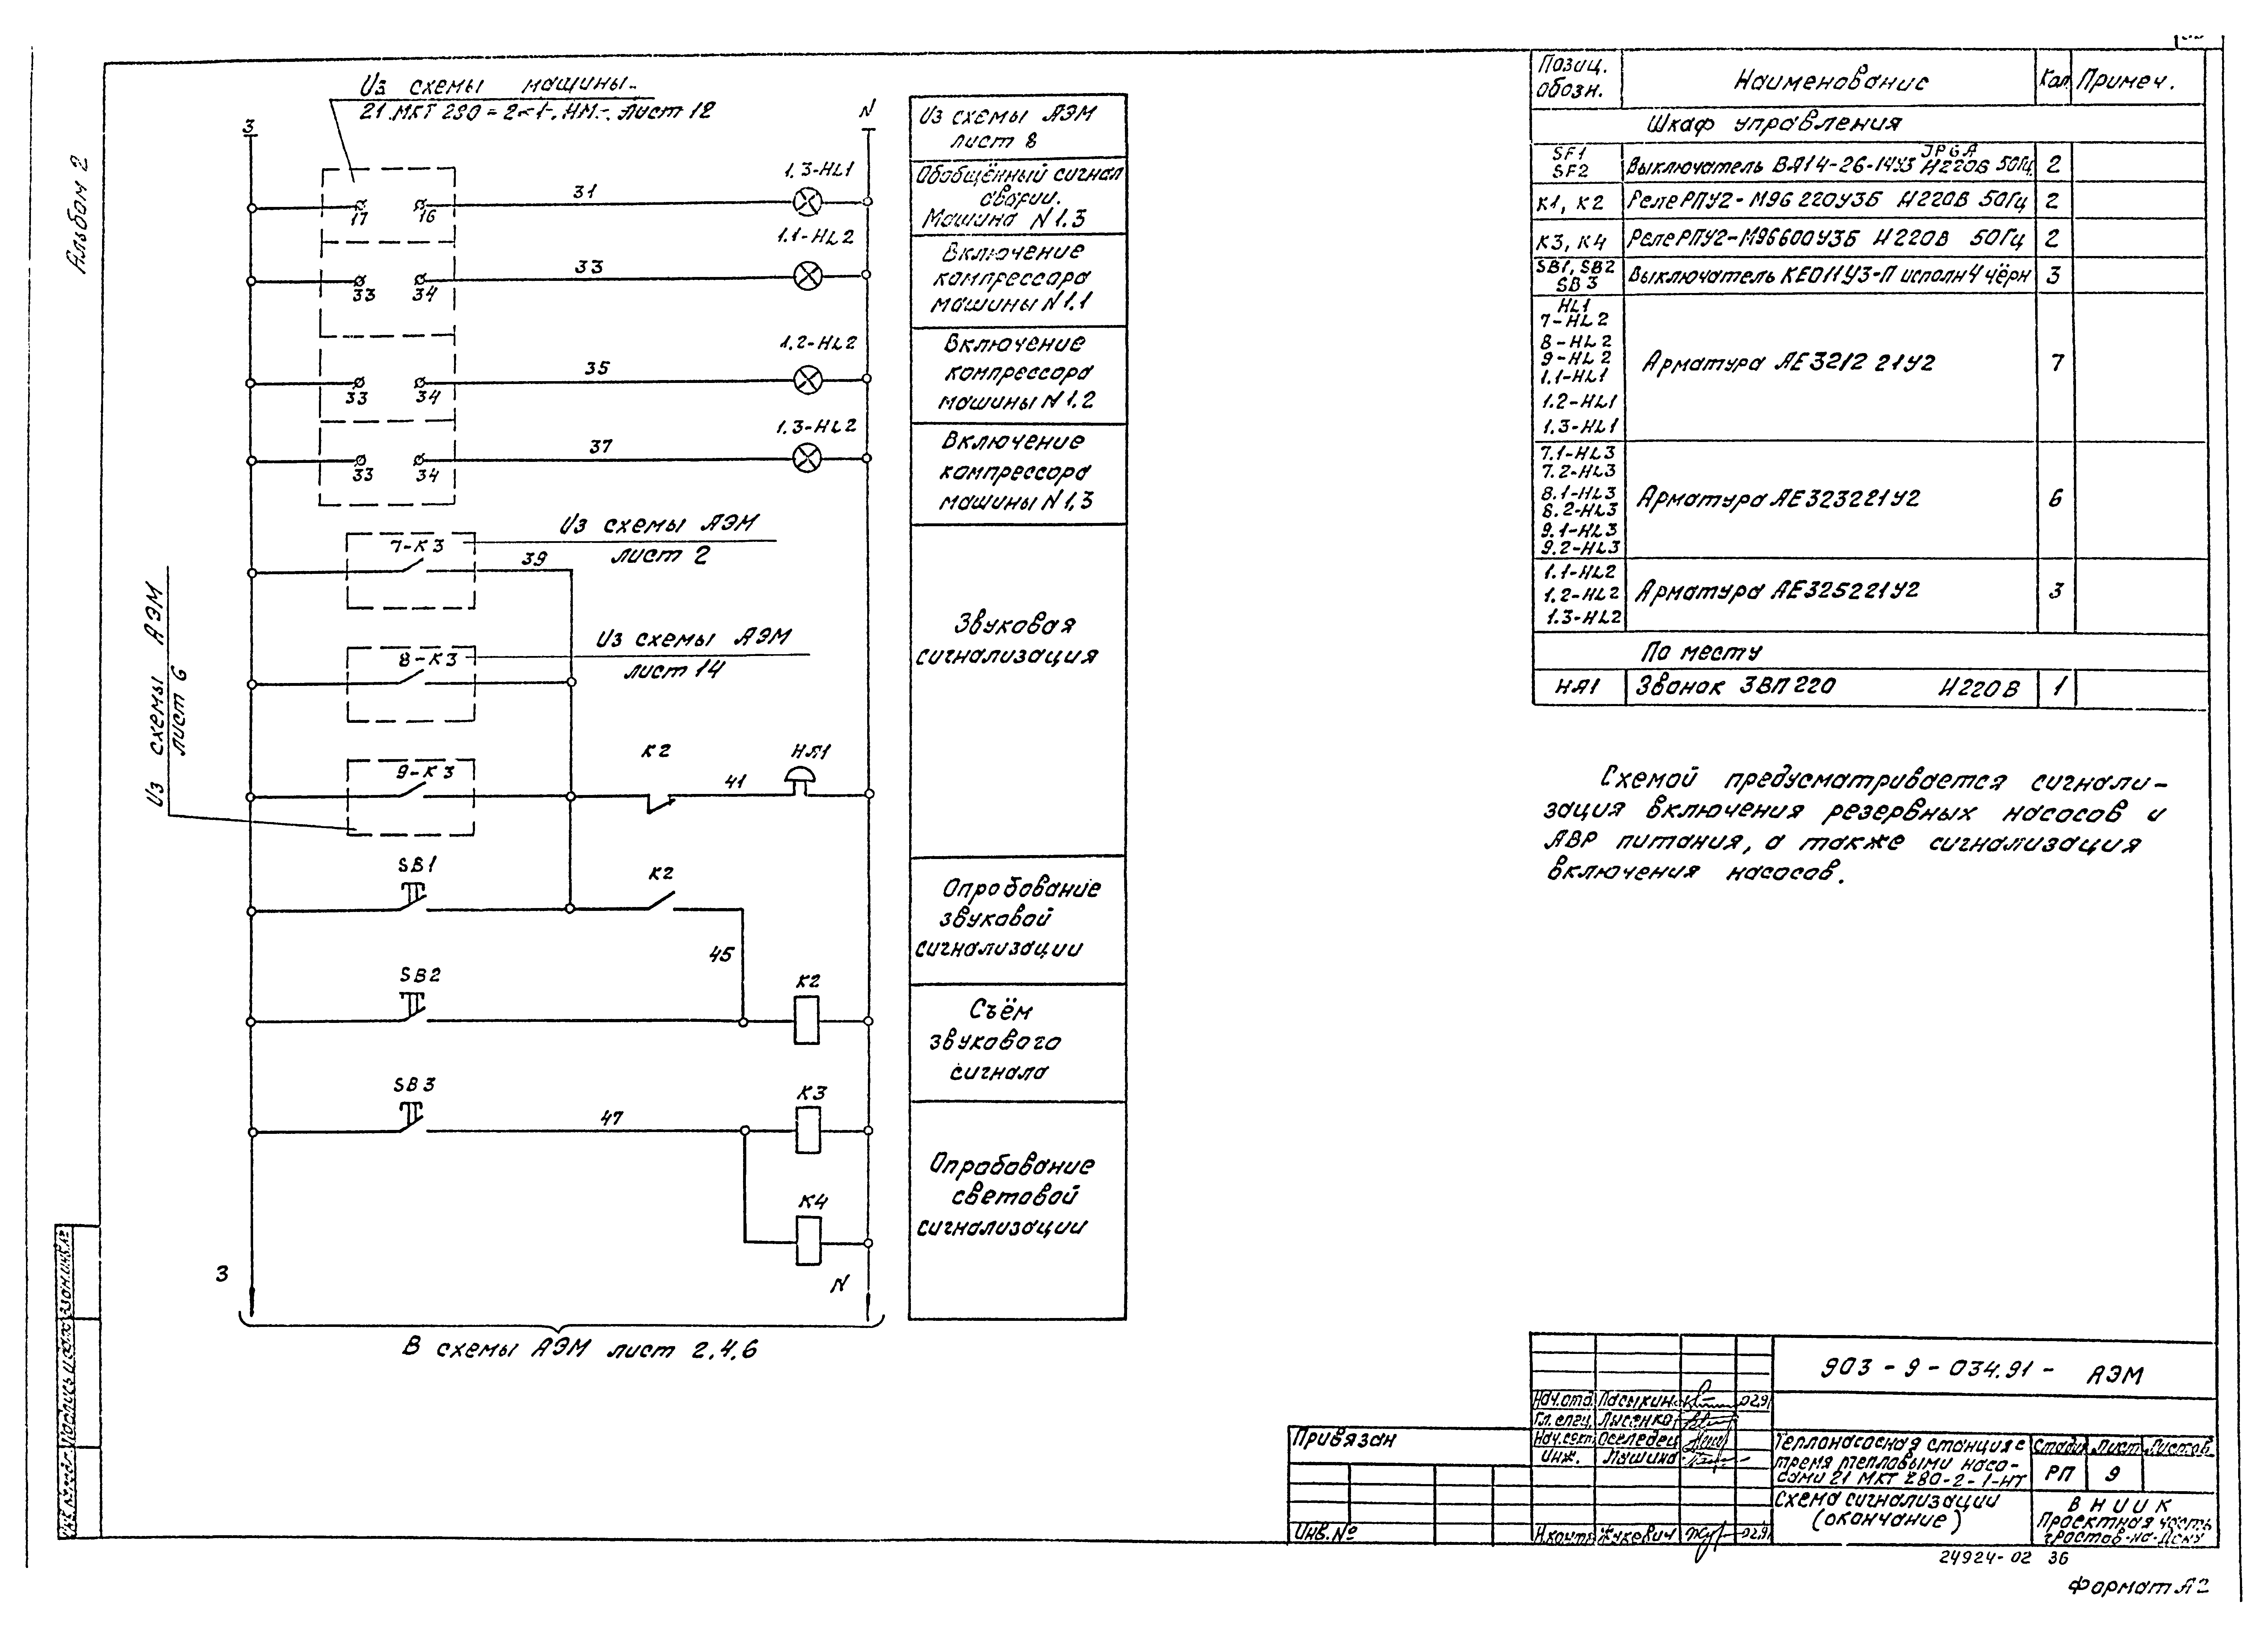 Альбом 2
Из схемы машины
21 МКТ 280-2-1-НТ лист 12
3
N
17
16
31
1.3-HL1
33
34
33
1.1-HL2
33
34
35
1.2-HL2
33
34
37
1.3-HL2
7-К3
39
Из схемы АЭМ
лист 2
8-К3
Из схемы АЭМ
лист 14
Из схемы АЭМ
лист 6
9-К3
К2
41
НА1
SB1
К2
45
SB2
К2
SB3
47
К3
К4
3
N
В схемы АЭМ лист 2,4,6
Из схемы АЭМ
лист 8
Обобщённый сигнал
аварии.
Машина N1.3
Включение
компрессора
машины N1.1
Включение
компрессора
машины N1.2
Включение
компрессора
машины N1.3
Звуковая
сигнализация
Опробование
звуковой
сигнализации
Съём
звукового
сигнала
Опробование
световой
сигнализации
Позиц. обозн.
Наименование
Кол.
Примеч.
Шкаф управления
SF1
SF2
Выключатель ВА14-26-14У3 Н220В 50Гц
2
К1, К2
Реле РПУ2-М96 220У3Б Н220В 50Гц
2
К3, К4
Реле РПУ2-М96600У3Б Н220В 50Гц
2
SB1, SB2
SB3
Выключатель КЕ011У3-П исполн 4 чёрн
3
HL1
7-HL2
8-HL2
9-HL2
1.1-HL1
1.2-HL1
1.3-HL1
Арматура АЕ3212 21У2
7
7.1-HL3
7.2-HL3
8.1-HL3
8.2-HL3
9.1-HL3
9.2-HL3
Арматура АЕ323221У2
6
1.1-HL2
1.2-HL2
1.3-HL2
Арматура АЕ325221У2
3
По месту
НА1
Звонок ЗВП220 Н220В
1
Схемой предусматривается сигнали-
зация включения резервных насосов и
АВР питания, а также сигнализация
включения насосов.
903-9-034.91- АЭМ
Нач.отд. Пасыкин 02.91
Гл. спец. Лысенко
Нач.сект. Оселедец
Инж. Пашина
Н.контр. Жукевич 02.91
Привязан
Инв.№
Теплонасосная станция с
тремя тепловыми насо-
сами 21 МКТ 280-2-1-НТ
Стадия Лист Листов
РП 9
Схема сигнализации
(окончание)
ВНИИК
Проектная часть
г. Ростов-на-Дону
24924-02 36
Формат А2